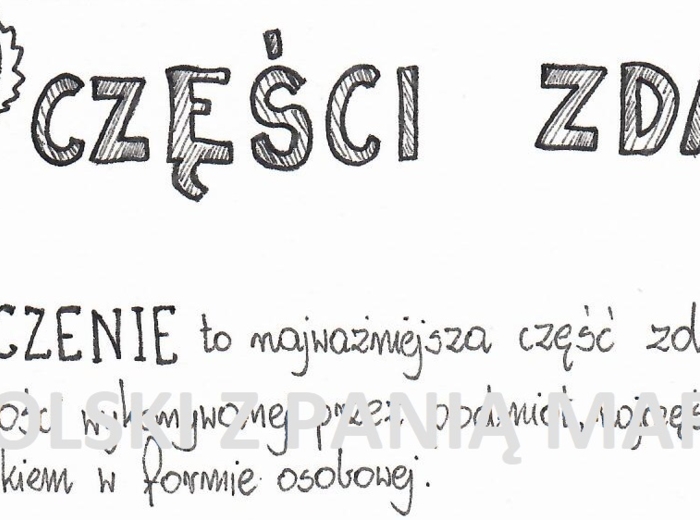 CZĘŚCI ZDA
CZENIE to najważniejsza część zd
ości wykonywanej przez podmiot, najczęś
kiem w formie osobowej.
OLSKI Z PANIĄ MA